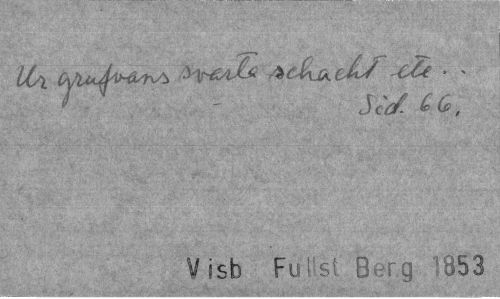 Ur grufvans svarta schacht etc..
Sid. 66.
Visb Fullst Berg 1853